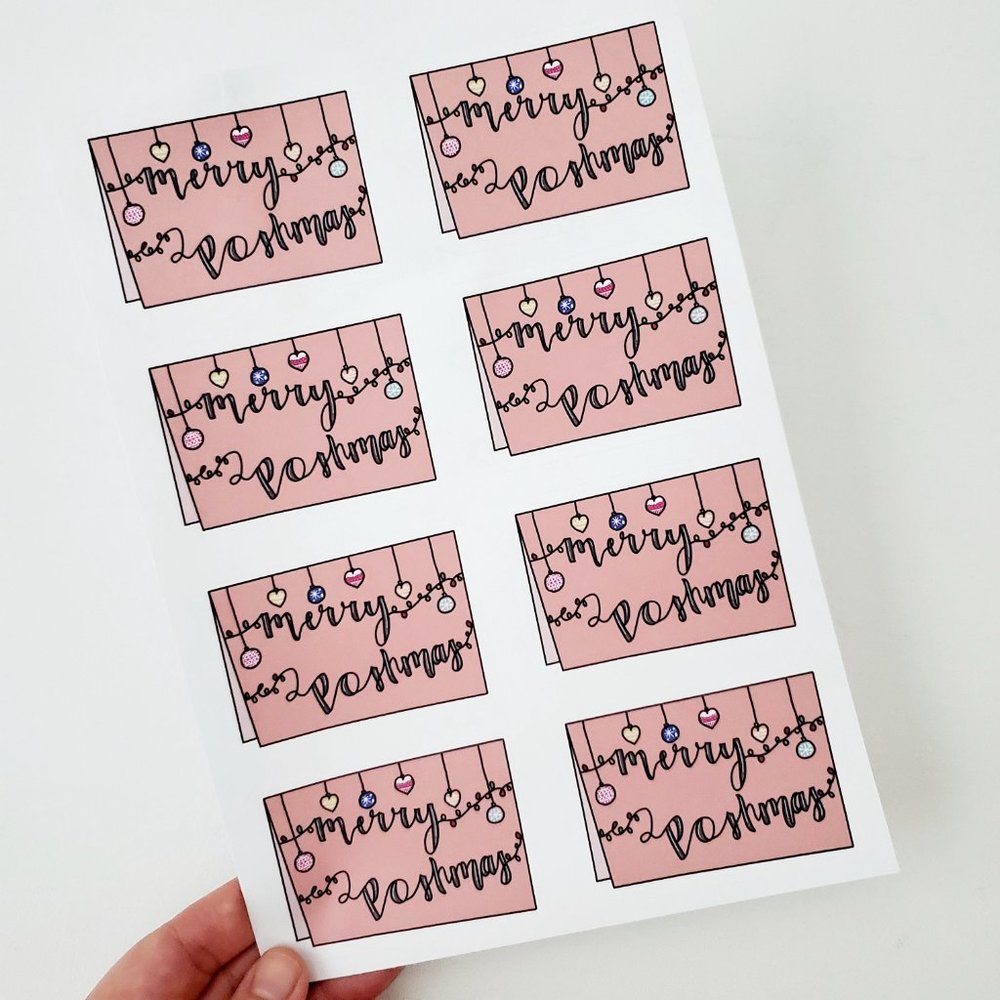 merry
Poshmas
merry
Poshmas
merry
Poshmas
merry
Poshmas
merry
Poshmas
merry
Poshmas
merry
Poshmas
merry
Poshmas